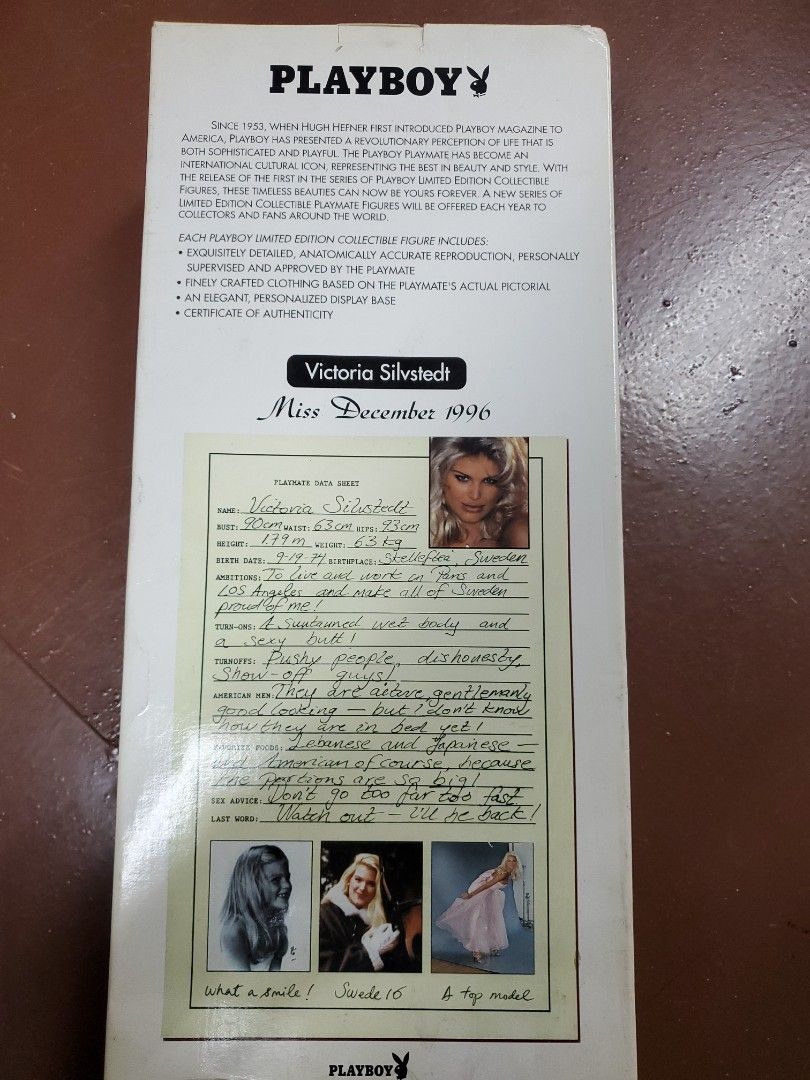 PLAYBOY
SINCE 1953, WHEN HUGH HEFNER FIRST INTRODUCED PLAYBOY MAGAZINE TO
AMERICA, PLAYBOY HAS PRESENTED A REVOLUTIONARY PERCEPTION OF LIFE THAT IS
BOTH SOPHISTICATED AND PLAYFUL. THE PLAYBOY PLAYMATE HAS BECOME AN
INTERNATIONAL CULTURAL ICON, REPRESENTING THE BEST IN BEAUTY AND STYLE. WITH
THE RELEASE OF THE FIRST IN THE SERIES OF PLAYBOY LIMITED EDITION COLLECTIBLE
FIGURES, THESE TIMELESS BEAUTIES CAN NOW BE YOURS FOREVER. A NEW SERIES OF
LIMITED EDITION COLLECTIBLE PLAYMATE FIGURES WILL BE OFFERED EACH YEAR TO
COLLECTORS AND FANS AROUND THE WORLD.
EACH PLAYBOY LIMITED EDITION COLLECTIBLE FIGURE INCLUDES:
• EXQUISITELY DETAILED, ANATOMICALLY ACCURATE REPRODUCTION, PERSONALLY
SUPERVISED AND APPROVED BY THE PLAYMATE
• FINELY CRAFTED CLOTHING BASED ON THE PLAYMATE'S ACTUAL PICTORIAL
• AN ELEGANT, PERSONALIZED DISPLAY BASE
• CERTIFICATE OF AUTHENTICITY
Victoria Silvstedt
Miss December 1996
PLAYMATE DATA SHEET
NAME: Victoria Silvstedt
BUST: 90cm WAIST: 63cm HIPS: 93cm
HEIGHT: 1.79m WEIGHT: 63 kg
BIRTH DATE: 9-19-74 BIRTHPLACE: Skelleftea, Sweden
AMBITIONS: To live and work in Paris and
LOS Angeles and make all of Sweden
proud of me!
TURN-ONS: A suntanned wet body and
a sexy butt!
TURNOFFS: Pushy people, dishonesty,
Show-off guys!
AMERICAN MEN: They are active, gentlemanly
good looking — but I don't know
how they are in bed yet!
FAVORITE FOODS: Lebanese and Japanese —
and American of course, because
the portions are so big!
SEX ADVICE: Don't go too far too fast.
LAST WORD: Watch out — I'll be back!
What a smile! Swede 16 A top model
PLAYBOY